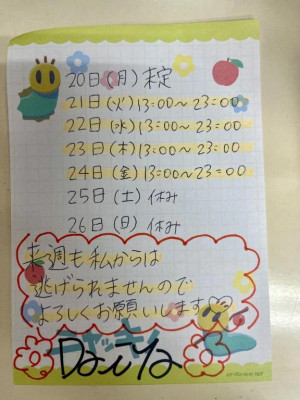 20日(月)未定
21日(火)13:00～23:00
22日(水)13:00～23:00
23日(木)13:00～23:00
24日(金)13:00～23:00
25日(土)休み
26日(日)休み
来週も私からは
逃げられませんので
よろしくお願いします